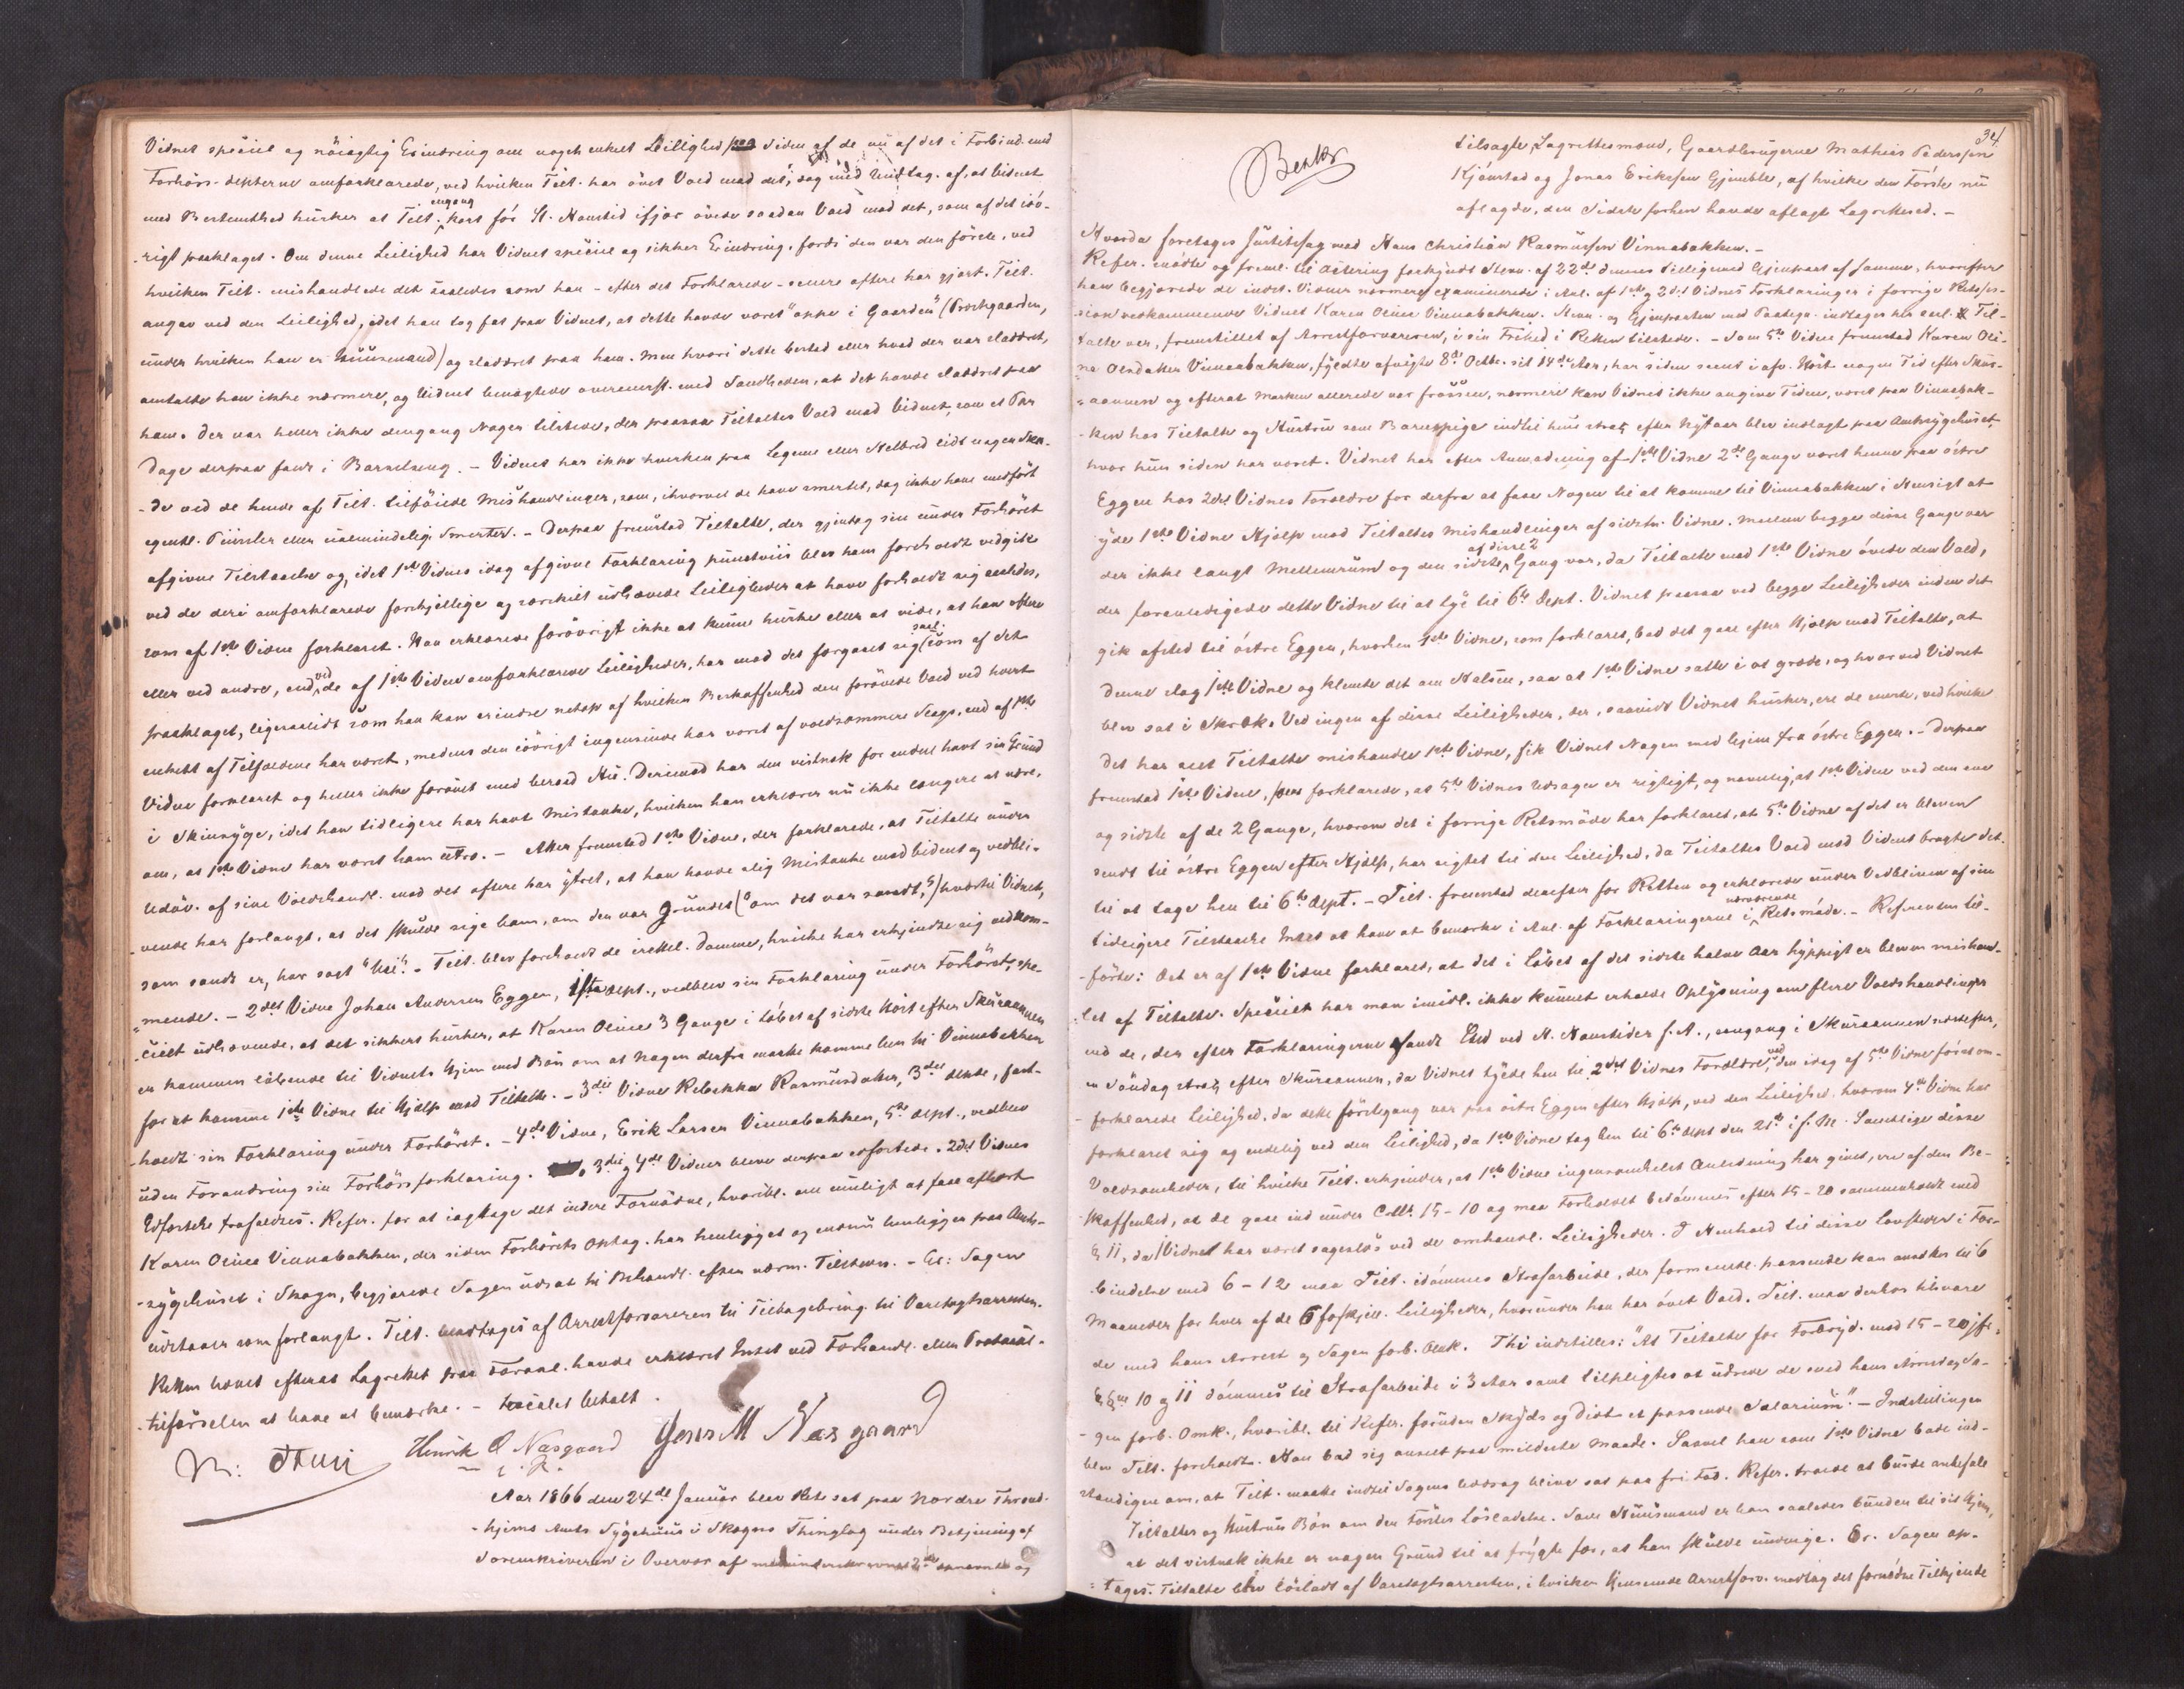 Vidnet speciel og nöiagtig Erindring om nogen enkelt Leilighed siden af de nu af det i Forbind. med
Forhörs-depterne omforklarede, ved hvilken Tilt. har övet Vold mod det, dog med Undtag. af, at Vidnet
med Bestemthed husker at Tilt. engang kort för St. Hanstid ifjor övede saadan Vold mod det, som af det iöv-
rigt paaklaget. Om denne Leilighed har Vidnet speciel og sikker Erindring, fordi den var den förste, ved
hvilken Tilt. mishandlede det saaledes som han - efter det Forklarede - senere oftere har gjort. Tilt.
angav ved den Leilighed, idet han tog fat paa Vidnet, at dette havde været "oppe i Gaarden" (Præstgaarden,
under hvilken han er Huusmand) og sladdret paa ham. Men hvori dette bestod eller hvad der var sladdret,
omtalte han ikke nærmere, og Vidnet benægtede overensst. med Sandheden, at det havde sladdret paa
ham. Der var heller ikke dengang Nogen tilstede, der paasaa Tiltaltes Vold mod Vidnet, som et Par
Dage derpaa faldt i Barselseng. - Vidnet har ikke hverken paa Legeme eller Helbred lidt nogen Ska-
de ved de hende af Tilt. tilföiede Mishandlinger, som, ihvorvel de have smertet, dog ikke have medfört
egentl. Piinsler eller ualmindelig Smerter. - Derpaa fremstod Tiltalte, der gjentog sin under Forhöret
afgivne Tilstaaelse og, idet 1ste Vidnes idag afgivne Forklaring punctviis blev ham foreholdt vedgik
ved de deri omforklarede forskjellige og særskilt udhævede Leiligheder at have forholdt sig saaledes,
som af 1ste Vidne forklaret. Han erklærede forövrigt ikke at kunne huske eller at vide, at han oftere
eller ved andre, end ved de af 1ste Vidne omforklarede Leiligheder, har mod det forgaaet sig saal. som af det
paaklaget, ligesaalidt som han kan erindre netop af hvilken Beskaffenhed den forövede Vold ved hvert
enkelt af Tilfældene har været, medens den iövrigt ingensinde har været af voldsommere Slags, end af 1ste
Vidne forklaret og heller ikke forövet med beraad Hu. Derimod har den vistnok for endeel havt sin Grund
i Skinsyge, idet han tidligere har havt Mistanke, hvilken han erklærer nu ikke længere at nære,
om, at 1ste Vidne har været ham utro. - Atter fremstod 1ste Vidne, der forklarede, at Tiltalte under
Udöv. af sine Voldshandl. mod det oftere har ytret, at han havde slig Mistanke mod Vidnet og vedbli-
vende har forlangt, at det skulde sige ham, om den var grundet ("om det var sandt,") hvortil Vidnet,
som sandt er, har sagt "Nei". - Tilt. blev foreholdt de irettel. Domme, hvilke har erkjendte sig vedkom-
mende. - 2det Vidne Johan Andersen Eggen, 1ste dept., vedblev sin Forklaring under Forhöret, spe-
cielt udhævende, at det sikkert husker, at Karen Oline 3 Gange i Löbet af sidste Höst efter Skuraannen
er kommen löbende til Vidnets Hjem med Bön om at Nogen derfra maatte komme hen til Vinnabakken
for at komme 1ste Vidne til Hjælp mod Tiltalte. - 3die Vidne Rebekka Rasmusdatter, 3die depte, fast-
holdt sin Forklaring under Forhöret. - 4de Vidne, Erik Larsen Vinnabakken, 5te dept., vedblev
uden Forandring sin Forhörsforklaring. 3die og 4de Vidner bleve derpaa edfæstede. 2det Vidnes
Edfæstelse frafaldtes. Refer. for at iagttage det videre Fornödne, hvoribl. om muligt at faae afhört
Karen Oline Vinnabakken, der siden Forhörets Optag. har henligget og endnu henligger paa Amts-
sygehuset i Skogn, begjærede Sagen udsat til Behandl. efter nærm. Tilstevn. - Er: Sagen
udstaaer som forlangt. Tilt. modtages af Arrestforvareren til Tilbagebring. til Varetægtsarresten.
Retten hævet efterat Lagrettet paa Foranl. havde erklæret Intet ved Forhandl. eller Protocol-
tilförselen at have at bemærke. - Localet betalt.
Henrik O Næsgaard Jens M Næsgaard
Aar 1866 den 24de Januar blev Ret sat paa Nordre Thrond-
hjems Amts Sygehuus i Skogns Thinglag under Betjening af
Sorenskriveren i Overvær af medundertegnede 2de opnævnte og
34.
tilsagte Lagrettesmænd, Gaardbrugerne Mathias Pedersen
Kjönstad og Jonas Eriksen Gjemble, af hvilke den Förste nu
aflagde, den Sidste forhen havde aflagt Lagrettesed. -
Hvorda foretages Justitssag mod Hans Christian Rasmussen Vinnabakken. -
Refer. mödte og freml. til Actering forkyndt Stevn. af 22de dennes tilligemed Gjenpart af samme, hvorefter
han begjærede de indst. Vidner nærmere examinerede i Anl. af 1ste og 2det Vidnes Forklaringer i forrige Retsses-
sion vedkommende Vidnet Karen Oline Vinnabakken. Stevn. og Gjenparten med Paategn. indtages her saal. Til-
talte var, fremstillet af Arrestforvareren, i sin Frihed i Retten tilstede. - Som 5te Vidne fremstod Karen Oli-
ne Olsdatter Vinnabakken, fyldte afvigte 8de Octbr. sit 14de Aar, har siden seent i afv. Höst nogen Tid efter Skur-
aannen og efterat Marken allerede var frossen, nærmere kan Vidnet ikke angive Tiden, været paa Vinnabak-
ken hos Tiltalte og Hustru som Barnepige indtil hun strax efter Nytaar blev indlagt paa Amtssygehuset,
hvor hun siden har været. Vidnet har efter Anmodning af 1ste Vidne 2de Gange været henne paa östre
Eggen hos 2det Vidnes Forældre for derfra at faae Nogen til at komme til Vinnabakken i Hensigt at
yde 1ste Vidne Hjælp mod Tiltaltes Mishandlinger af sidstn. Vidne. Mellem begge disse Gange var
der ikke langt Mellemrum og den sidste af disse 2 Gang var, da Tiltalte mod 1ste Vidne övede den Vold,
der foranledigede dette Vidne til at tye til 6te Dept. Vidnet paasaa ved begge Leiligheder inden det
gik afsted til östre Eggen, hvorhen 1ste Vidne, som forklaret, bad det gaae efter Hjælp mod Tiltalte, at
Denne slog 1ste Vidne og klemte det om Halsen, saa at 1ste Vidne satte i at græde, og hvorved Vidnet
blev sat i Skræk. Ved ingen af disse Leiligheder, der, saavidt Vidnet husker, ere de eneste, ved hvilke
det har seet Tiltalte mishandle 1ste Vidne, fik Vidnet Nogen med hjem fra östre Eggen. - Derpaa
fremstod 1ste Vidne, forklarede, at 5te Vidnes Udsagn er rigtigt, og navnlig, at 1ste Vidne ved den ene
og sidste af de 2 Gange, hvorom det i forrige Retsmöde har forklaret, at 5te Vidne af det er bleven
sendt til östre Eggen efter Hjælp, har sigtet til den Leilighed, da Tiltaltes Vold mod Vidnet bragte det
til at tage hen til 6te dept. - Tilt. fremstod derefter for Retten og erklærede under Vedbliven af sin
tidligere Tilstaaelse Intet at have at bemærke i Anl. af Forklaringerne i nærværende Retsmöde. - Referenten til-
förte: Det er af 1ste Vidne forklaret, at det i Löbet af det sidste halve Aar hyppigt er bleven mishand-
let af Tiltalte. Specielt har man imidl. ikke kunnet erholde Oplysning om flere Voldshandlinger
end de, der efter Forklaringerne fandt Sted ved St. Hanstider f. A., engang i Skuraannen næstefter,
en Söndag strax efter Skuraannen, da Vidnet tyede hen til 2det Vidnes Forældre, ved den idag af 5te Vidne först om-
forklarede Leilighed, da dette förstegang var paa östre Eggen efter Hjælp, ved den Leilighed, hvorom 4de Vidne har
forklaret sig og endelig ved den Leilighed, da 1ste Vidne tog hen til 6te dept den 21de i f. M. Samtlige disse
Voldsomheder, til hvilke Tilt. erkjender, at 1ste Vidne ingensomhelst Anledning har givet, ere af den Be-
skaffenhed, at de gaae ind under C.L. 15-10 og maa Forholdet bedömmes efter 15-20 sammenholdt med
§ 11, da Vidnet har været sageslös ved de omhandl. Leiligheder. I Henhold til disse Lovsteder i For-
bindelse med 6-12 maa Tilt. idömmes Strafarbeide, der formentl. passende kan ansættes til 6
Maaneder for hver af de 6 forskjell. Leiligheder, hvorunder han har övet Vold. Tilt. maa derhos tilsvare
de med hans Arrest og Sagen forb. Omk. Thi indstilles: "At Tiltalte for Forbryd. mod 15-20 jfr.
§§ne 10 og 11 dömmes til Strafarbeide i 3 Aar samt tilpligtes at udrede de med hans Arrest og Sa-
gen forb. Omk., hvoribl. til Refer. foruden Skyds og Diæt et passende Salarium". - Indstillingen
blev Tilt. foreholdt. Han bad sig anseet paa mildeste Maade. Saavel han som 1ste Vidne bade ind-
stændigen om, at Tilt. maatte indtil Sagens Uddrag blive sat paa fri Fod. Refer. troede at burde anbefale
Tiltaltes og Hustrues Bön om den Förstes Lösladelse. Som Huusmand er han saaledes bunden til sit Hjem,
at det vistnok ikke er nogen Grund til at frygte for, at han skulde undvige. Er. Sagen op-
tages. Tiltalte blev lösladt af Varetægtsarresten, i hvilken Henseende Arrestforv. modtog det fornödne Tilkjende